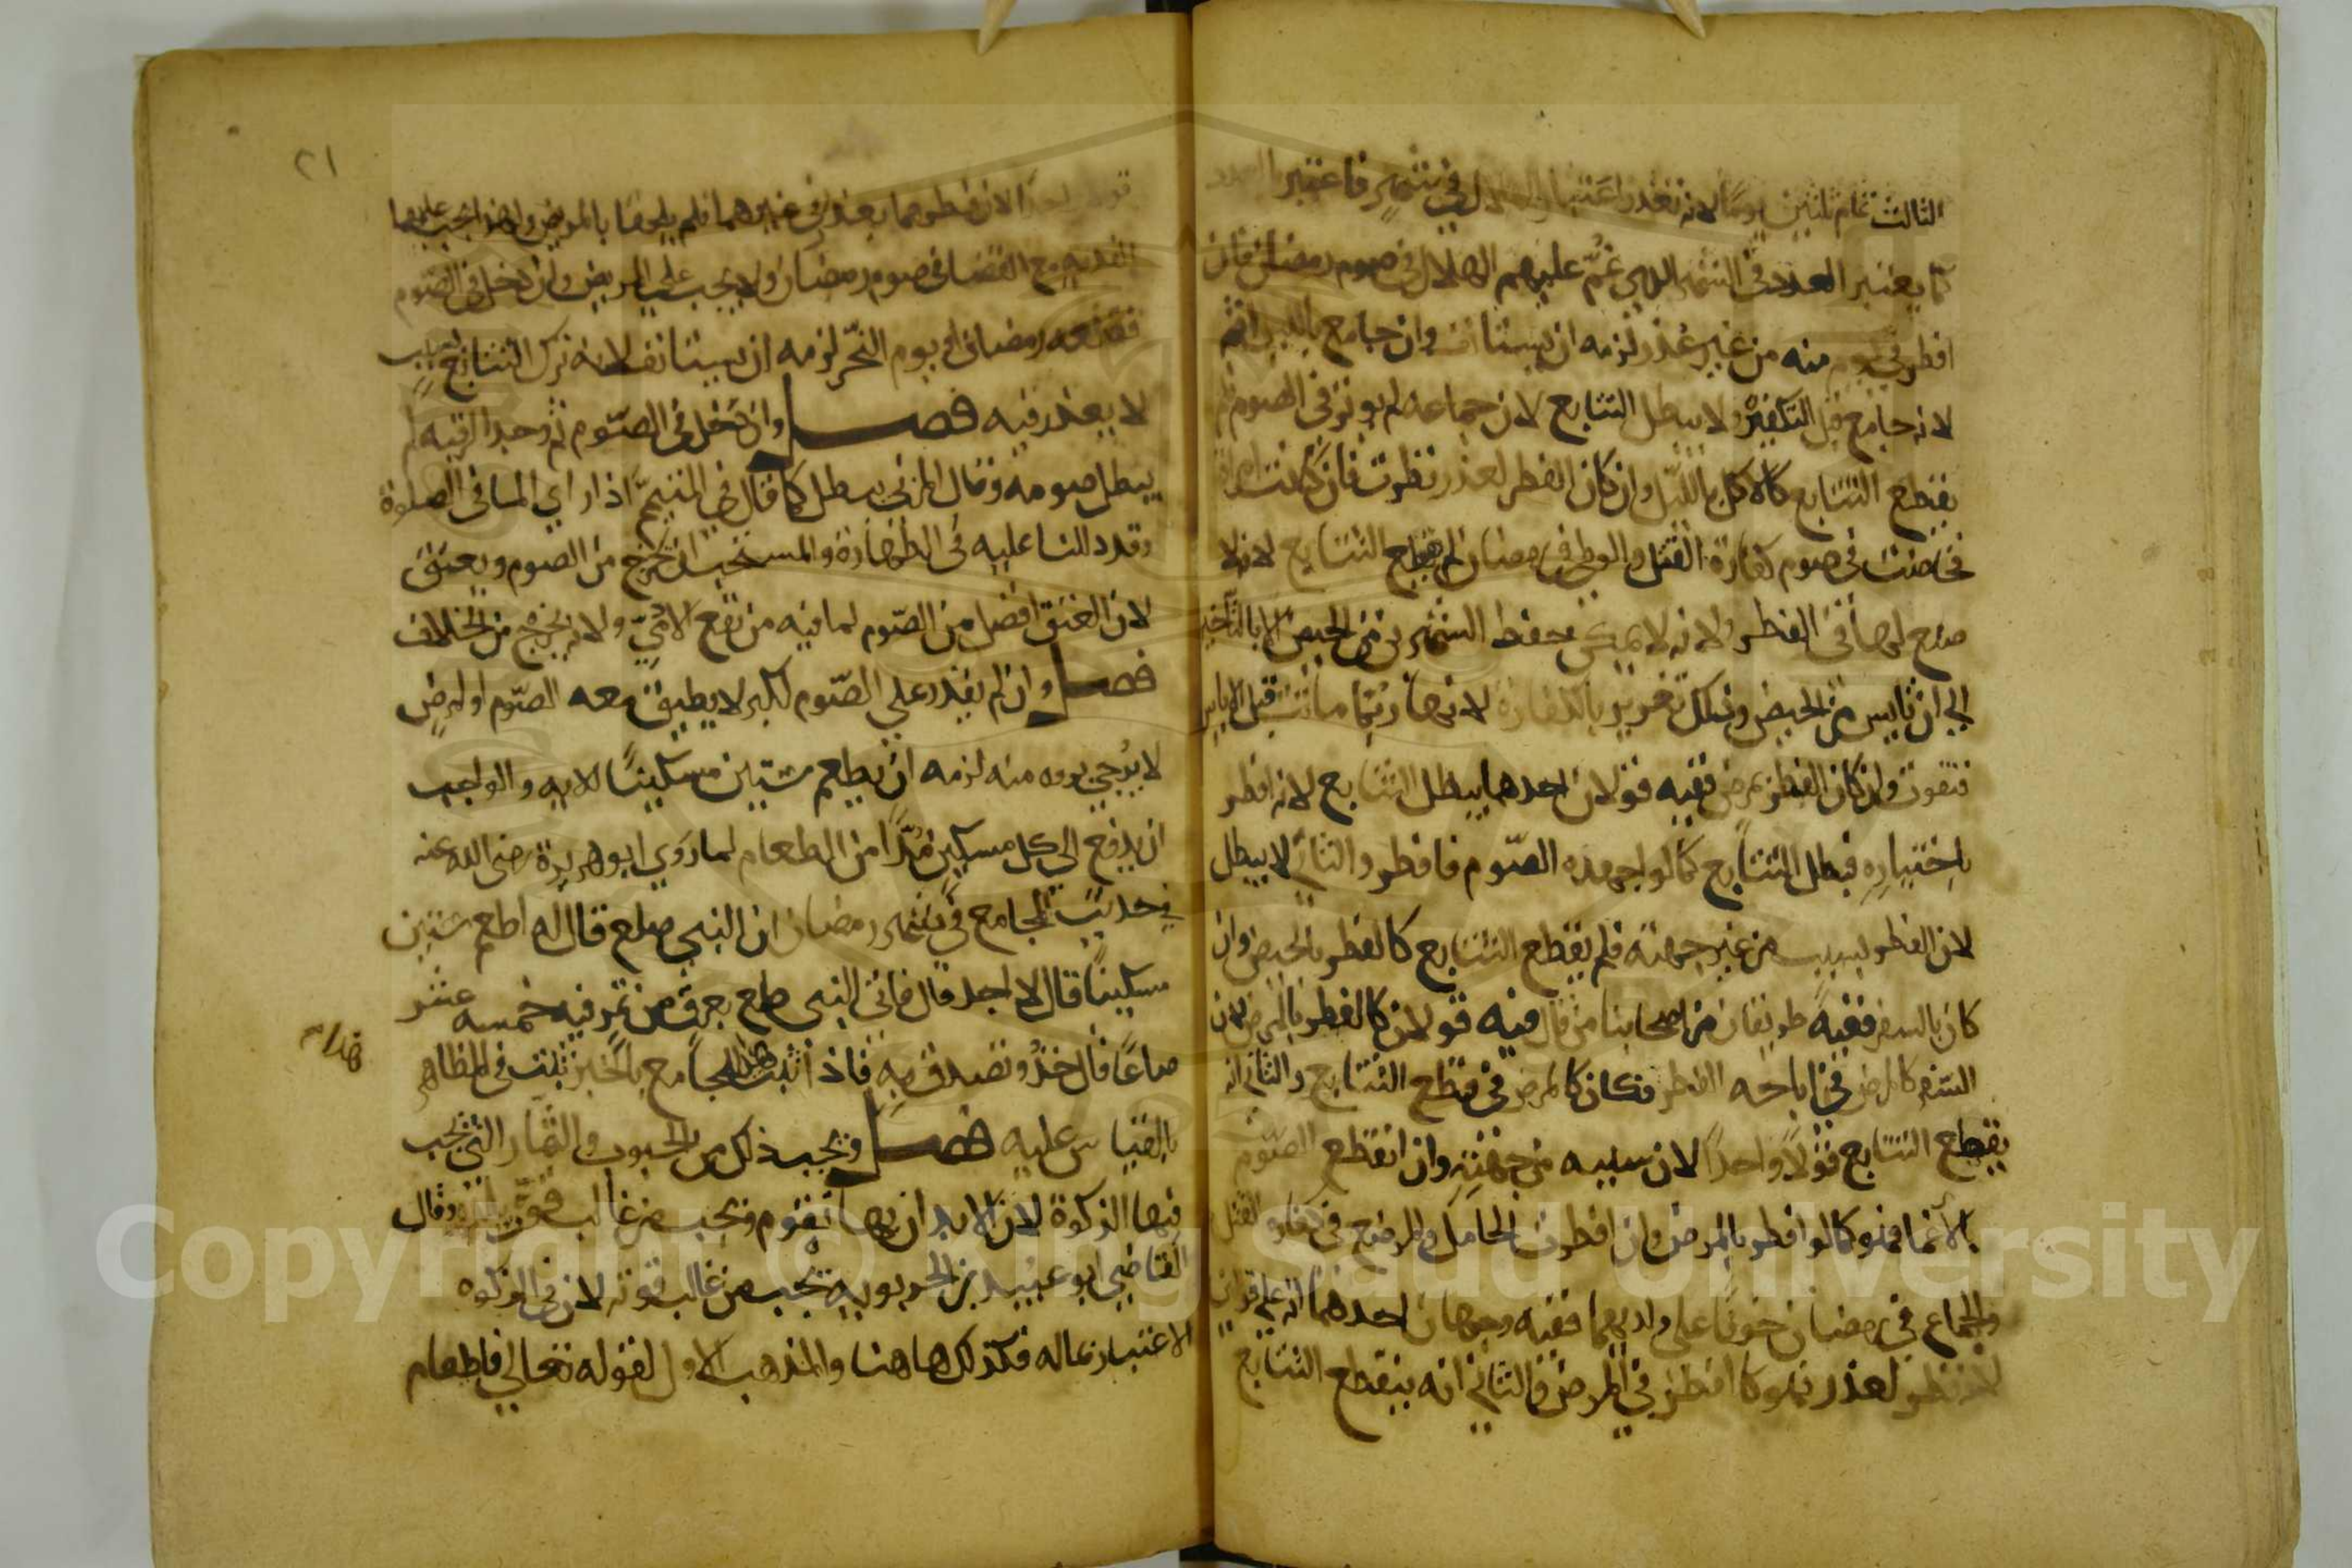 الثالث تمام ثلثين يوما لانه تعذر اعتبار الهلال في شهر فاعتبر العدد
كما يعتبر العدد في الشهر الذي غم عليهم الهلال في صوم رمضان فان
افطر في يوم منه من غير عذر لزمه ان يستانف وان جامع بالليل اثم
لانه جامع قبل التكفير ولا يبطل التتابع لان جماعه لم يوثر في الصوم فلم
يقطع التتابع كالاكل بالليل وان كان الفطر لعذر نظرت فان كانت امراة
فحاضت في صوم كفارة القتل والوطي في رمضان لم ينقطع التتابع لانه لا
صنع لها في الفطر ولانه لا يمكن حفظ الشهرين من الحيض الا بالتاخير
الى ان تايس من الحيض وفي ذلك تغرير بالكفارة لانها ربما ماتت قبل الاياس
فتفوت وان كان الفطر بمرض ففيه قولان احدهما يبطل التتابع لانه افطر
باختياره فبطل التتابع كما لو اجهده الصوم فافطر والثاني لا يبطل
لان الفطر بسبب من غير جهته فلم يقطع التتابع كالفطر بالحيض وان
كان بالسفر ففيه طريقان من اصحابنا من قال فيه قولان كالفطر بالمرض لان
السفر كالمرض في اباحه الفطر فكان كالمرض في قطع التتابع والثاني انه
يقطع التتابع قولا واحدا لان سببه من جهته وان انقطع الصوم
بالاغما فهو كما لو افطر بالمرض وان افطرت الحامل والمرضع في كفارة القتل
والجماع في رمضان خوفا على ولديهما ففيه وجهان احدهما انه على قولين
لانه فطر لعذر فهو كا افطر في المرض والثاني انه ينقطع التتابع
٢١
قولا واحدا لان فطرهما بعذر في غيرهما فلم يلحقا بالمريض ولهذا تجب عليهما
الفديه مع القضا في صوم رمضان ولا يجب على المريض وان دخل في الصوم
فقطعه رمضان او يوم النحر لزمه ان يستانف لانه ترك التتابع بسبب
لا يعذر فيه فصل وان دخل في الصوم ثم وجد الرقبه لم
يبطل صومه وقال المزني يبطل كما قال في المتيمم اذا راي الما في الصلوة
وقد دللنا عليه في الطهارة والمستحب ان يخرج من الصوم ويعتق
لان العتق افضل من الصوم لما فيه من نفع الادمي ولانه يخرج من الخلاف
فصل وان لم يقدر على الصوم لكبر لا يطيق معه الصوم او لمرض
لا يرجي بروه منه لزمه ان يطعم ستين مسكينا للايه والواجب
ان يدفع الى كل مسكين مدا من الطعام لما روي ابو هريرة رضى الله عنه
في حديث المجامع في شهر رمضان ان النبي صلعم قال له اطعم ستين
مسكينا قال لا اجد قال فاتى النبي صلعم بعرق من تمر فيه خمسه عشر
صاعا قال خذه وتصدق به فاذا ثبت هذا في المجامع بالخبر ثبت في المظاهر
بالقياس عليه فصل ويجب ذلك من الحبوب والثمار التي تجب
فيها الزكوة لان الابدان بها تقوم ويجب من غالب قوت بلده وقال
القاضي ابو عبيد بن الحربويه يجب من غالب قوته لان في الزكوه
الاعتبار بماله فكذلك هاهنا والمذهب الاول لقوله تعالى فاطعام